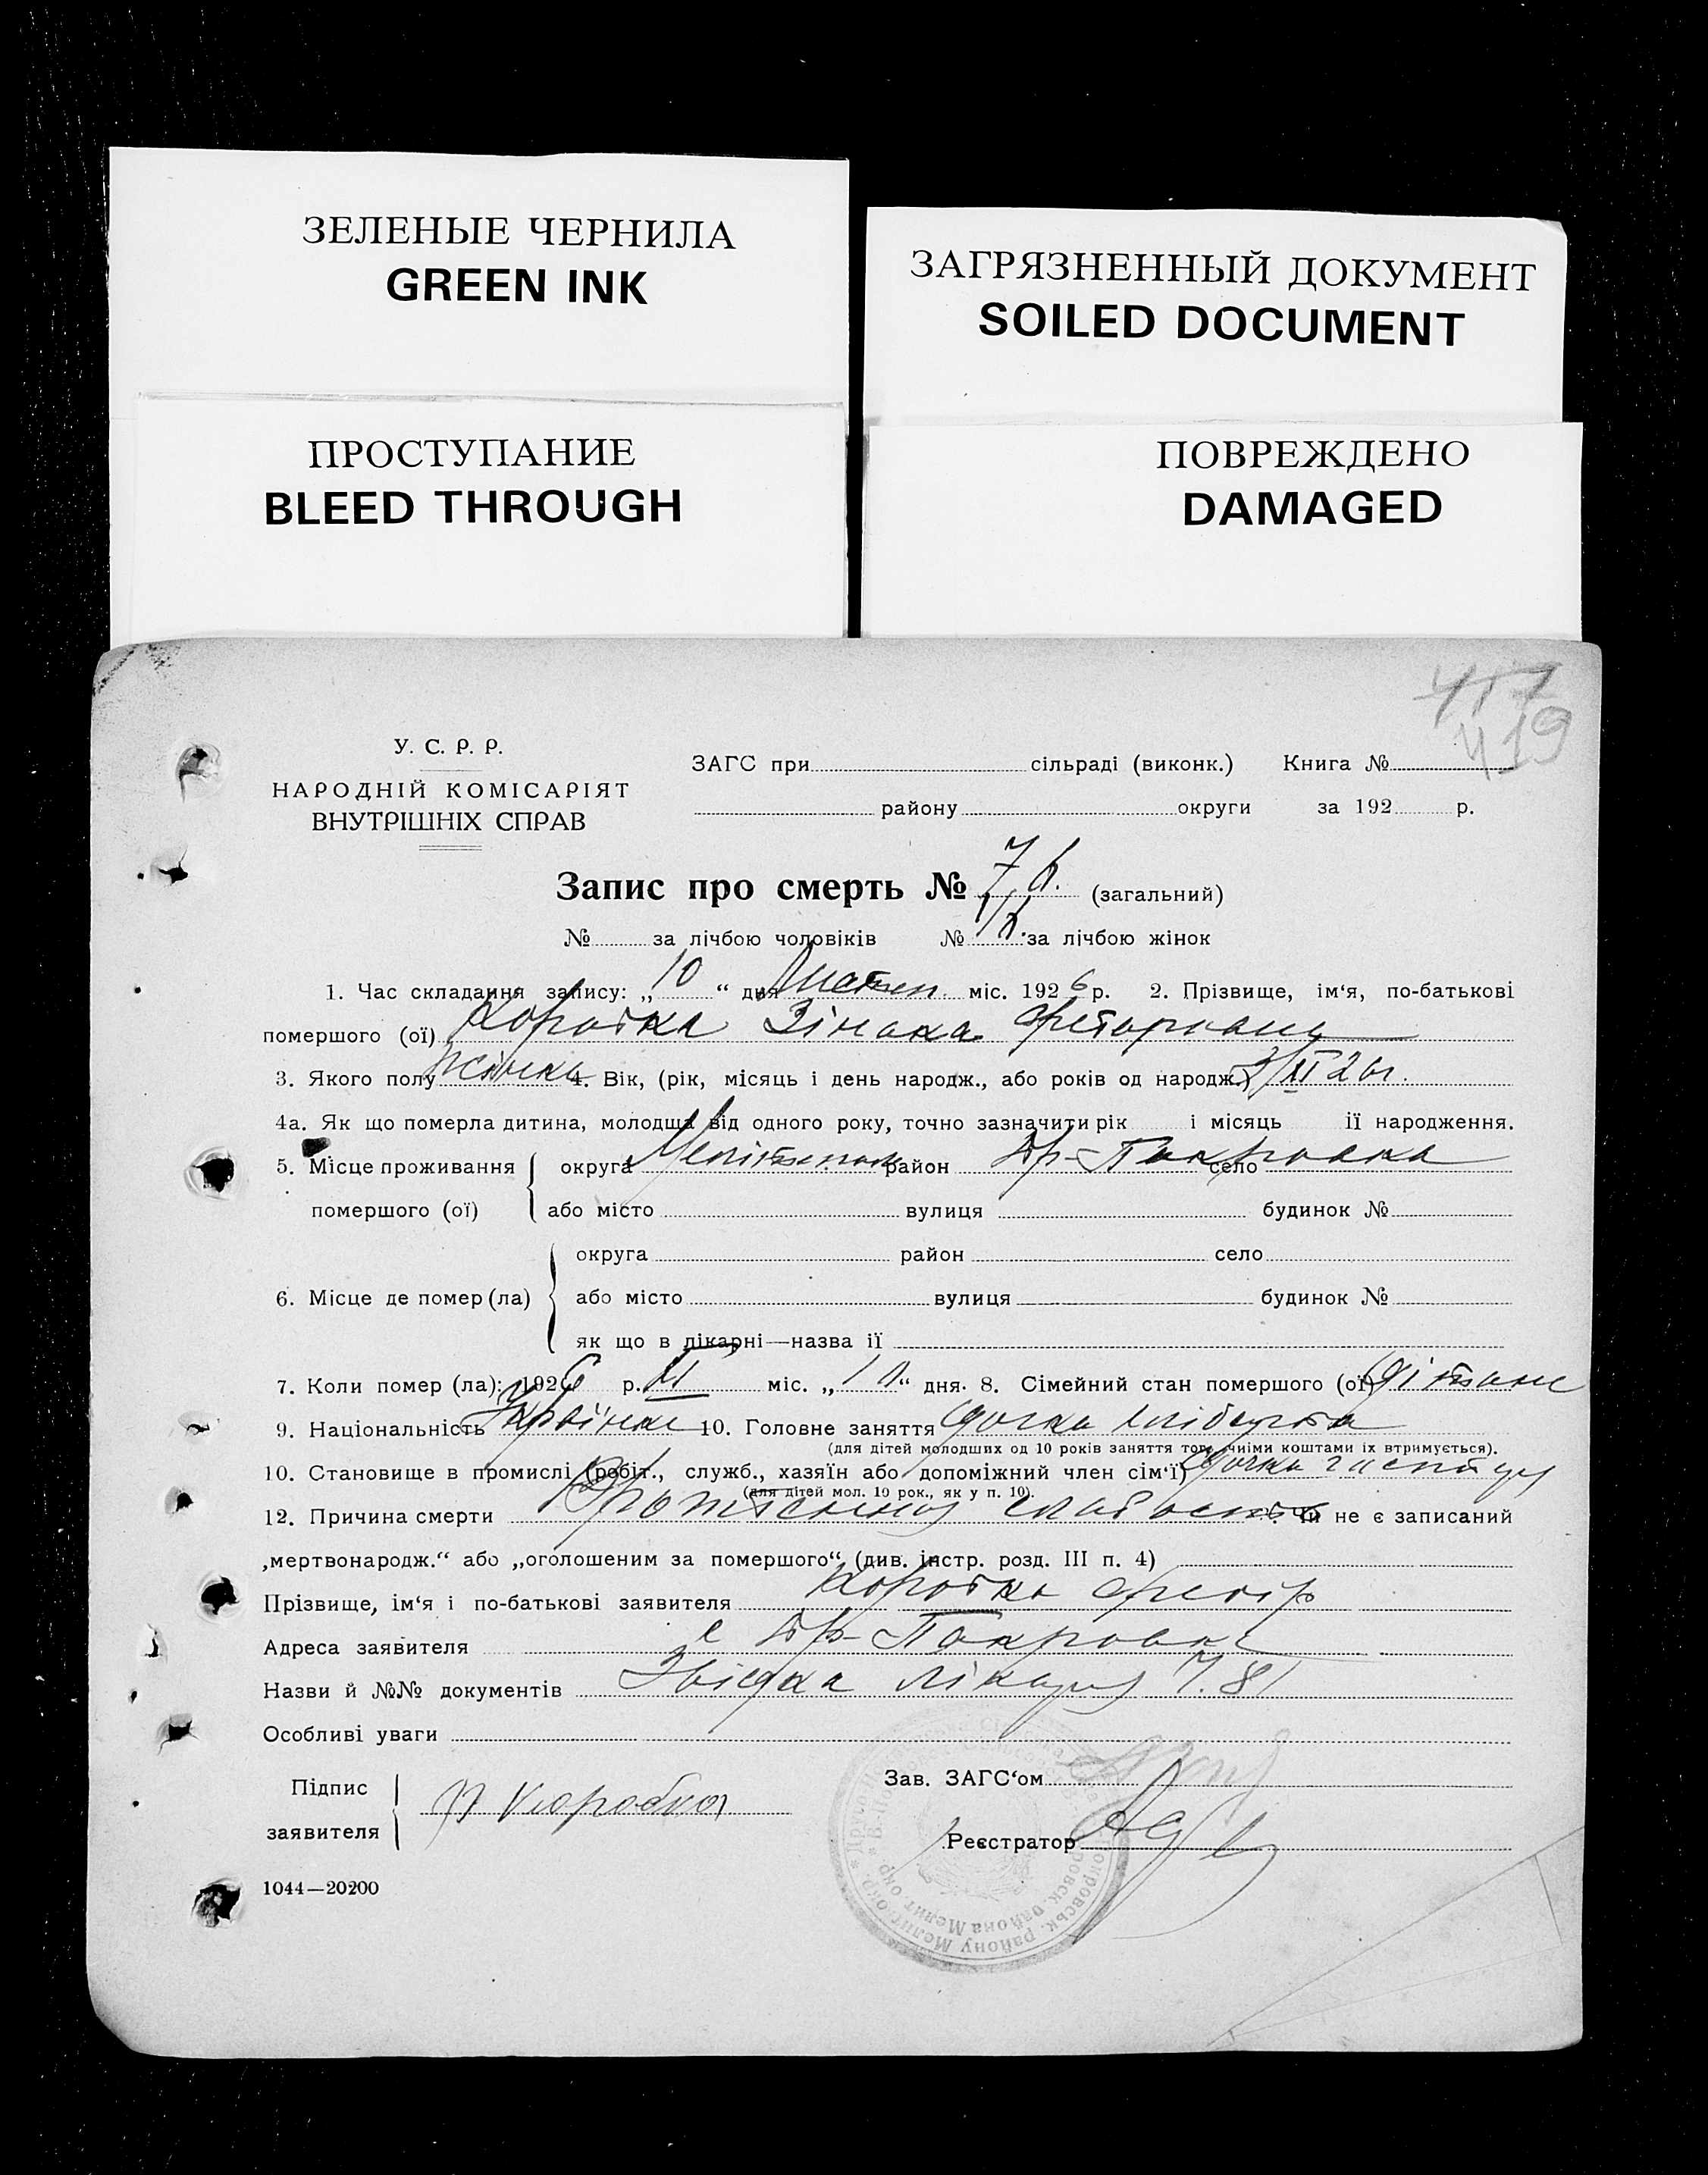 ЗЕЛЕНЫЕ ЧЕРНИЛА
GREEN INK
ЗАГРЯЗНЕННЫЙ ДОКУМЕНТ
SOILED DOCUMENT
ПРОСТУПАНИЕ
BLEED THROUGH
ПОВРЕЖДЕНО
DAMAGED
417
419
У. С. Р. Р.
НАРОДНІЙ КОМІСАРІЯТ
ВНУТРІШНІХ СПРАВ
ЗАГС при сільраді (виконк.) Книга №
району округи за 192 р.
Запис про смерть № (загальний)
№ за лічбою чоловіків № за лічбою жінок
1. Час складання запису: „10“ дня Листоп. міс. 1926 р. 2. Прізвище, ім‘я, по-батькові
помершого (ої) Коробка Зінаха
3. Якого полу Жінка 4. Вік, (рік, місяць і день народж., або років од народж.)
4а. Як що померла дитина, молодша від одного року, точно зазначити рік і місяць її народження.
5. Місце проживання округа район Др-Покровка село
помершого (ої) або місто вулиця будинок №
округа район село
6. Місце де помер (ла) або місто вулиця будинок №
як що в лікарні—назва її
7. Коли помер (ла): 1926 р. XI міс. „10“ дня. 8. Сімейний стан помершого (ої)
9. Національність Українка 10. Головне заняття дочка хлібороба
(для дітей молодших од 10 років заняття того, чиїми коштами їх втримується).
10. Становище в промислі (робіт., служб., хазяїн або допоміжний член сім‘ї) дочка
(для дітей мол. 10 рок., як у п. 10).
12. Причина смерти Чи не є записаний
„мертвонародж.“ або „оголошеним за помершого“ (див. інстр. розд. III п. 4)
Прізвище, ім‘я і по-батькові заявителя Коробка
Адреса заявителя с Др-Покровка
Назви й №№ документів Звідка Лікаря
Особливі уваги
Підпис
заявителя Коробка
Зав. ЗАГС‘ом
Реєстратор
1044—20200